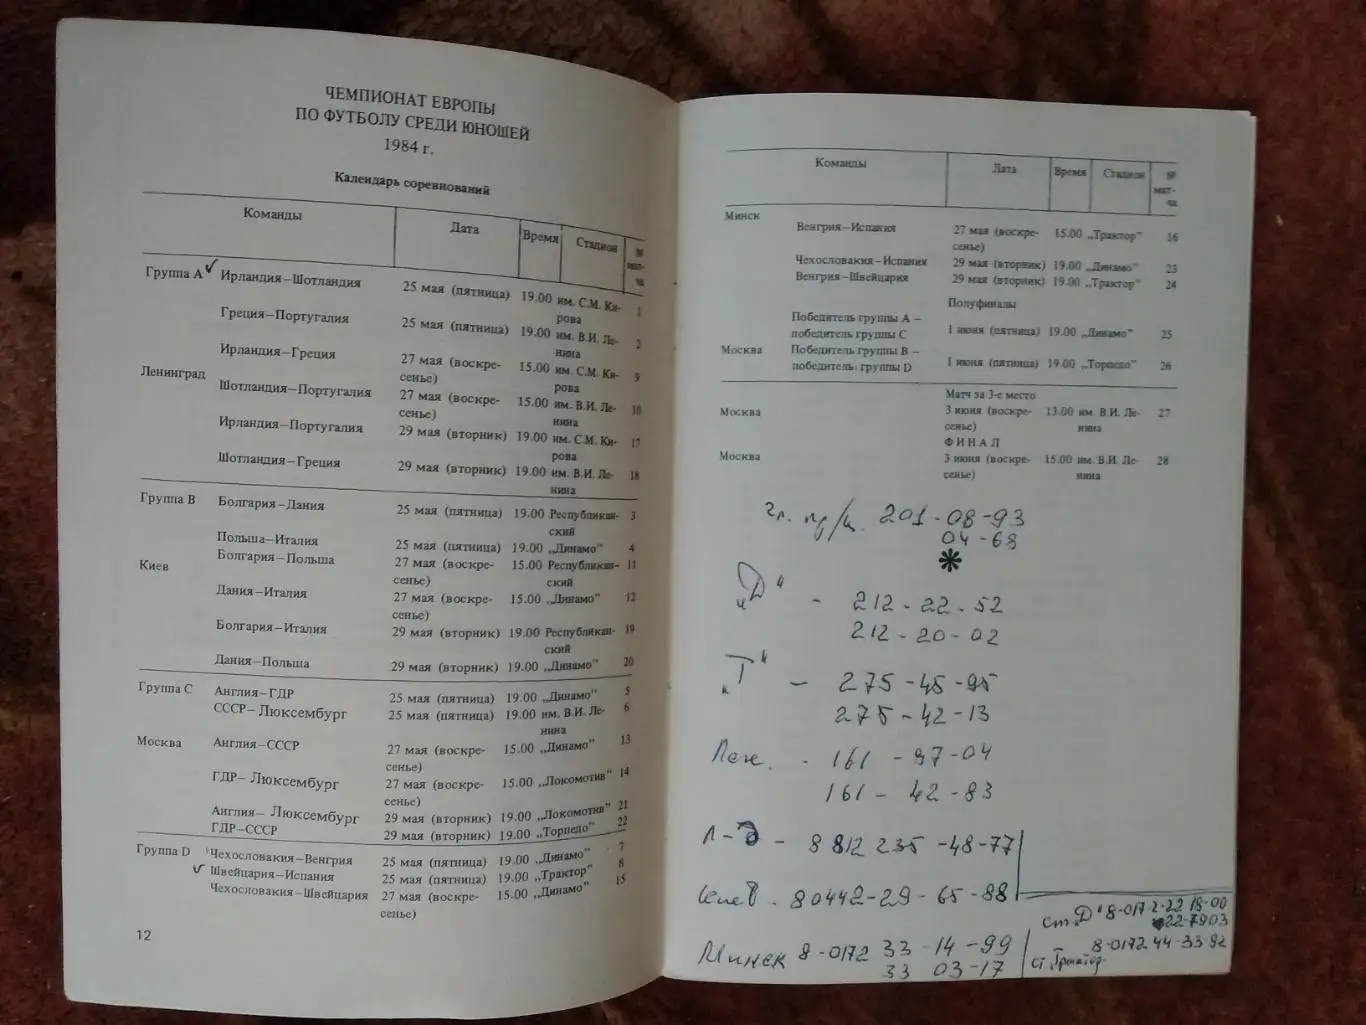 ЧЕМПИОНАТ ЕВРОПЫ
ПО ФУТБОЛУ СРЕДИ ЮНОШЕЙ
1984 г.
Календарь соревнований
Команды Дата Время Стадион № мат-ча
Группа А Ирландия—Шотландия 25 мая (пятница) 19.00 им. С.М. Ки-рова 1
Греция—Португалия 25 мая (пятница) 19.00 им. В.И. Ле-нина 2
Ирландия—Греция 27 мая (воскре-сенье) 15.00 им. С.М. Ки-рова 9
Ленинград Шотландия—Португалия 27 мая (воскре-сенье) 15.00 им. В.И. Ле-нина 10
Ирландия—Португалия 29 мая (вторник) 19.00 им. С.М. Ки-рова 17
Шотландия—Греция 29 мая (вторник) 19.00 им. В.И. Ле-нина 18
Группа В Болгария—Дания 25 мая (пятница) 19.00 Республикан-ский 3
Польша—Италия 25 мая (пятница) 19.00 „Динамо” 4
Болгария—Польша 27 мая (воскре-сенье) 15.00 Республикан-ский 11
Киев Дания—Италия 27 мая (воскре-сенье) 15.00 „Динамо” 12
Болгария—Италия 29 мая (вторник) 19.00 Республикан-ский 19
Дания—Польша 29 мая (вторник) 19.00 „Динамо” 20
Группа С Англия—ГДР 25 мая (пятница) 19.00 „Динамо” 5
СССР—Люксембург 25 мая (пятница) 19.00 им. В.И. Ле-нина 6
Москва Англия—СССР 27 мая (воскре-сенье) 15.00 „Динамо” 13
ГДР— Люксембург 27 мая (воскре-сенье) 15.00 „Локомотив” 14
Англия— Люксембург 29 мая (вторник) 19.00 „Локомотив” 21
ГДР—СССР 29 мая (вторник) 19.00 „Торпедо” 22
Группа D Чехословакия—Венгрия 25 мая (пятница) 19.00 „Динамо” 7
Швейцария—Испания 25 мая (пятница) 19.00 „Трактор” 8
Чехословакия—Швейцария 27 мая (воскре-сенье) 15.00 „Динамо” 15
12
Команды Дата Время Стадион № мат-ча
Минск Венгрия—Испания 27 мая (воскре-сенье) 15.00 „Трактор” 16
Чехословакия—Испания 29 мая (вторник) 19.00 „Динамо” 23
Венгрия—Швейцария 29 мая (вторник) 19.00 „Трактор” 24
Полуфиналы
Победитель группы А —
победитель группы С 1 июня (пятница) 19.00 „Динамо” 25
Москва Победитель группы В —
победитель группы D 1 июня (пятница) 19.00 „Торпедо” 26
Матч за 3-е место
Москва 3 июня (воскре-сенье) 13.00 им. В.И. Ле-нина 27
ФИНАЛ
Москва 3 июня (воскре-сенье) 15.00 им. В.И. Ле-нина 28
201-08-93
04-68
„Д“ - 212-22-52
212-20-02
„Т“ - 275-45-95
275-42-13
161-97-04
161-42-83
8 812 235-48-77
Киев - 80442-29-65-88
Минск 8-0172 33-14-99
33 03-17
ст. „Д“ 8-0172-22 18-00
22-7903
8-0172 44-33-92
ст. „Трактор“